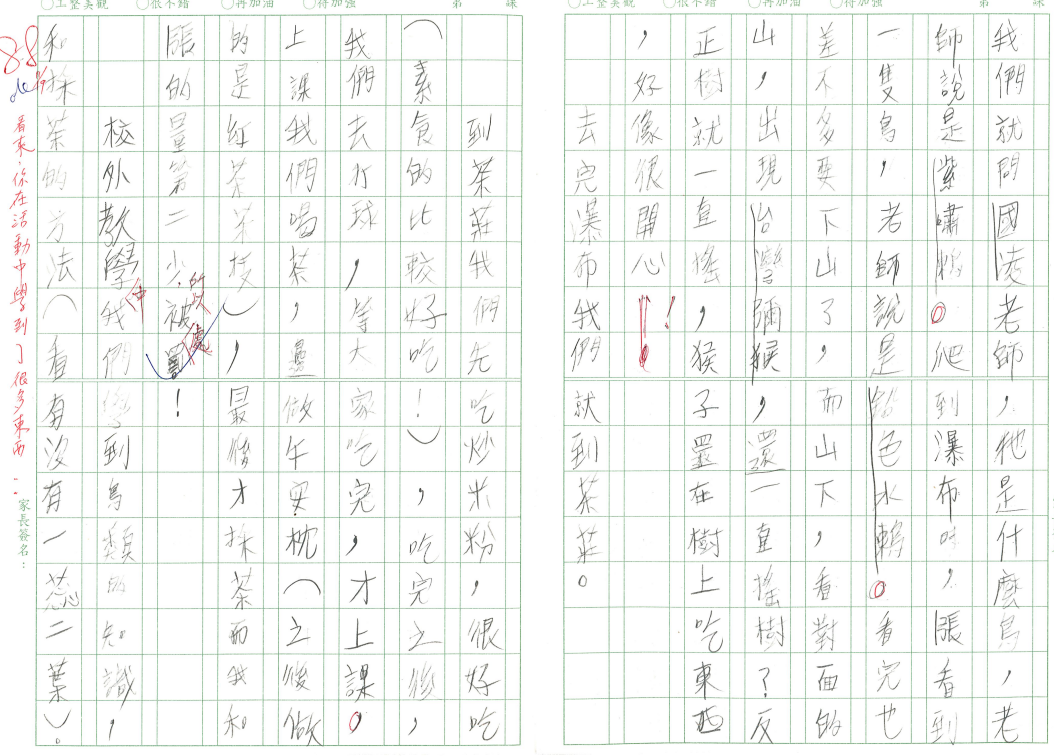 ○工整美觀 ○很不錯 ○再加油 ○待加強 第 課
我們就問國凌老師，牠是什麼鳥，老
師說是紫嘯鶇。爬到瀑布時，張看，到
一隻鳥，老師說是鉛色水鶇。看完也
差不多要下山了，而山下，看對面的
山，出現台灣獼猴，還一直搖樹？反
正樹就一直搖，猴子還在樹上吃東西
，好像很開心！
去完瀑布我們就到茶莊。
○工整美觀 ○很不錯 ○再加油 ○待加強 第 課
到茶莊我們先吃炒米粉，很好吃
（素食的比較好吃！），吃完之後，
我們去打球，等大家吃完，才上課，
上課我們喝茶，還做午安枕（之後做
的是紅茶茶枝），最後才採茶而我和
張的量第二少被罵！
所以
處
校外教學我們學到鳥類的知識，
中
和採茶的方法（看有沒有一蕊二葉）。
88
看來，你在活動中學到了很多東西...
家長簽名：